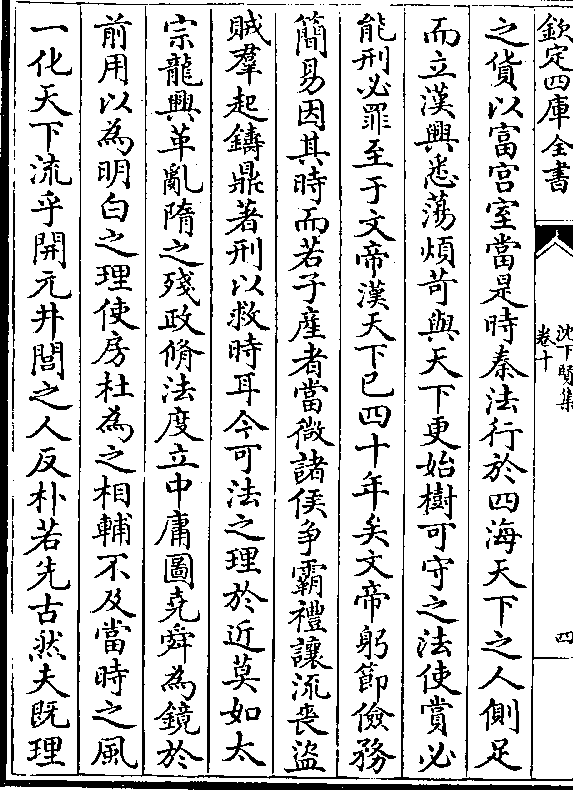 欽定四庫全書
沈下賢集
卷十
四
之貨以富宫室當是時秦法行於四海天下之人側足
而立漢興悉蕩煩苛與天下更始樹可守之法使賞必
能刑必罪至于文帝漢天下已四十年矣文帝躬節儉務
簡易因其時而若子産者當微諸侯争霸禮讓流喪盜
賊羣起鑄鼎著刑以救時耳今可法之理於近莫如太
宗龍興革亂隋之殘政脩法度立中庸圖堯舜為鏡於
前用以為明白之理使房杜為之相輔不及當時之風
一化天下流乎開元井閭之人反朴若先古然夫既理